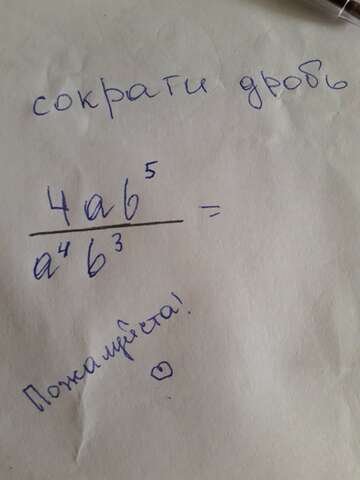 сократи дробь
4ab⁵
a⁴b³ =
Пожалуйста!